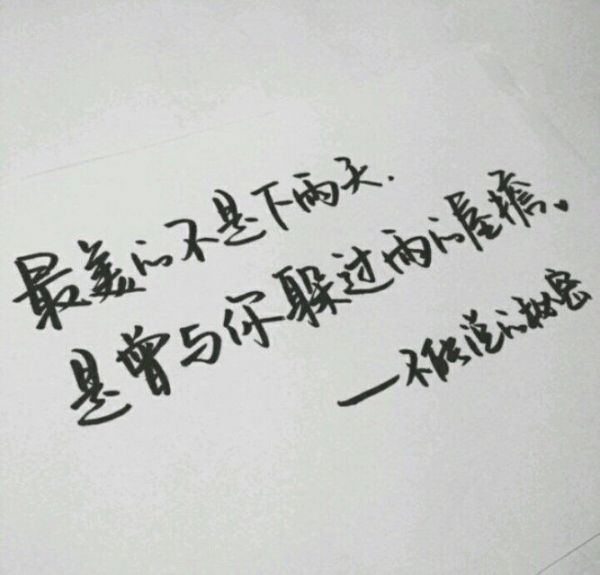 最美的不是下雨天.
是曾与你躲过雨的屋檐。
—不能说的秘密